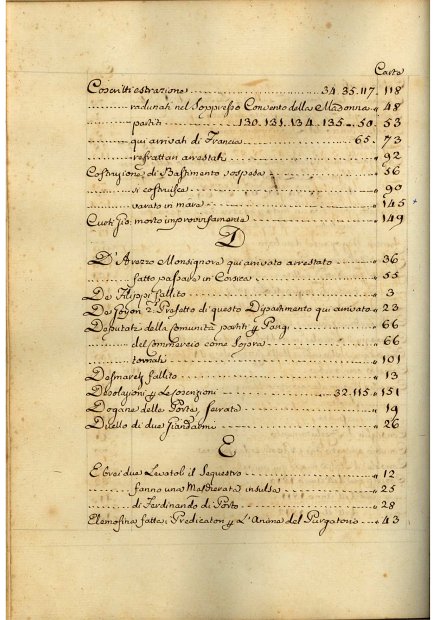 Carte
Coscritti estrazione 34. 35. 117. 118
radunati nel Soppresso Convento della Madonna " 48
partiti 130. 131. 134. 135. 50. 53
qui arrivati di Francia 65. 73
refrattari arrestati " 92
Costruzione di Bastimento sospesa " 56
si costruisce " 90
varato in mare " 145
morto improvisamente " 149
D
D'Arezzo Monsignore qui arrivato arrestato " 36
fatto passare in Corsica " 55
De Filippi fallito " 3
2.° Prefetto di questo Dipartimento qui arrivato " 23
Deputati della Comunità partiti p Parigi " 66
del Commercio come Sopra " 66
tornati " 101
Desmaretz fallito " 13
32. 115. " 151
Dogane delle Porte, Serrata " 19
Duello di due Giandarmi " 26
E
Ebrei due Levatoli il Sequestro " 12
fanno una Mascherata insulsa " 25
di Ferdinando di Porto " 28
Elemosina fatta: Predicatori p l'Anime del Purgatorio " 43